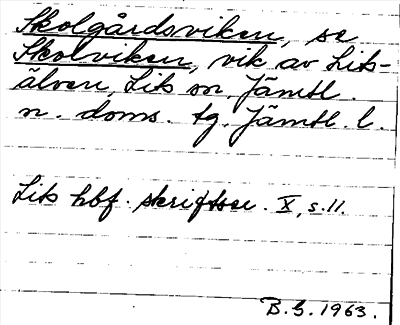 Skolgårdsviken, se
Skolviken, vik av Lits-
älven, Lits sn, Jämtl.
n. doms. tg. Jämtl. l.
Lits hbf. skriftser. X, s. 11.
B. G. 1963.